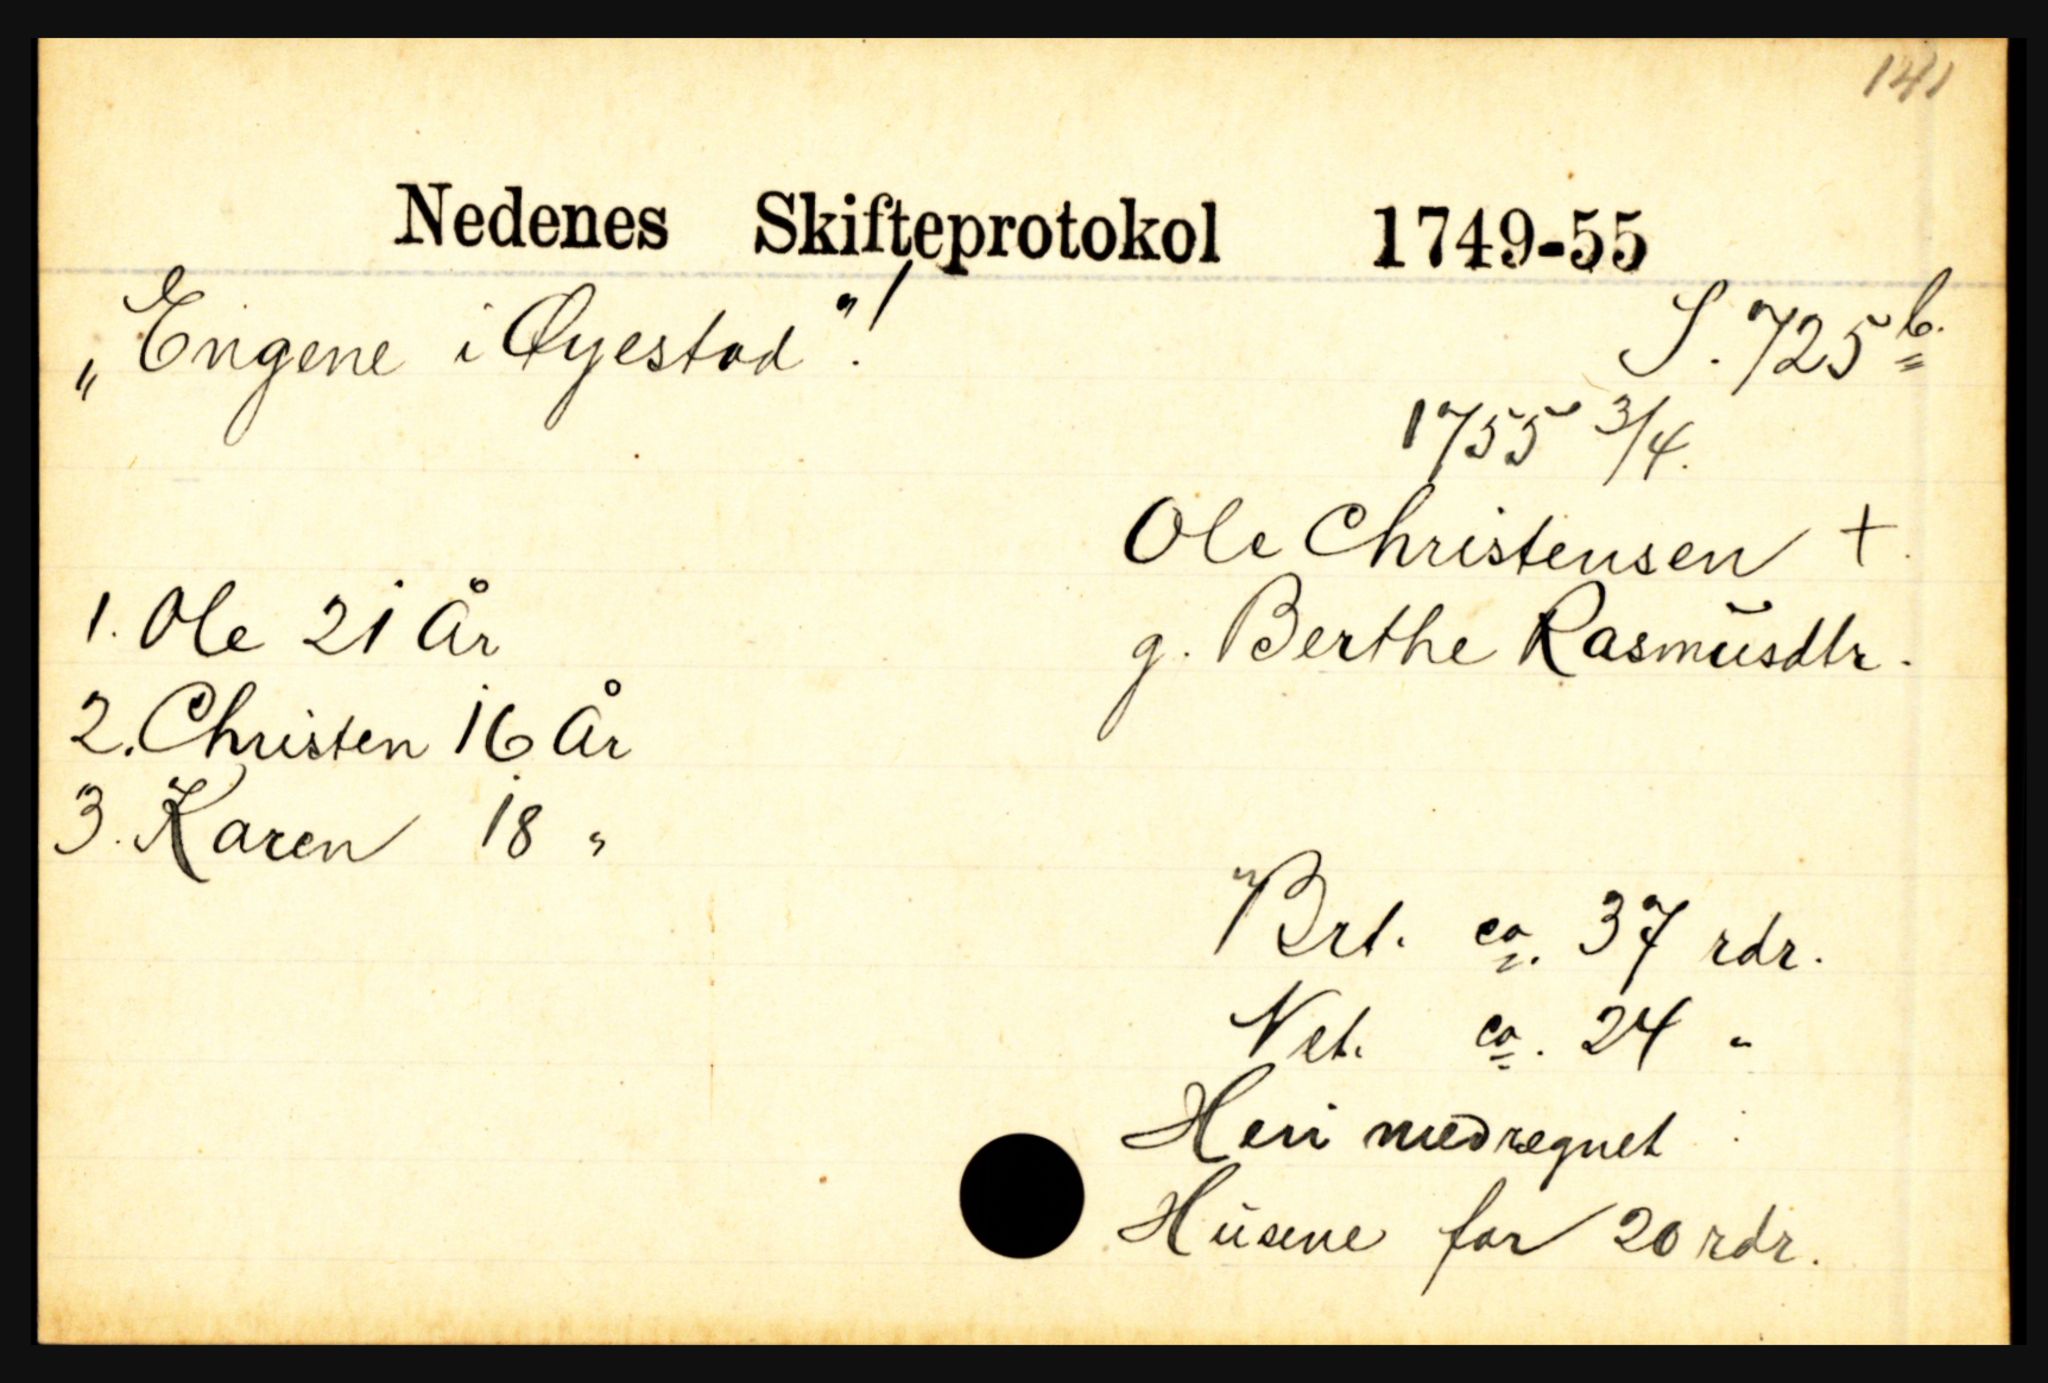 141
Nedenes Skifteprotokol 1749-55
„Engene i Øyestad"!
S. 725 b.
1755 3/4.
Ole Christensen +.
g. Berthe Rasmusdtr.
1. Ole 21 År
2. Christen 16 År
3. Karen 18 "
Brt. ca. 37 rdr.
Net. ca. 24 "
Heri medregnet
Husene for 20 rdr.